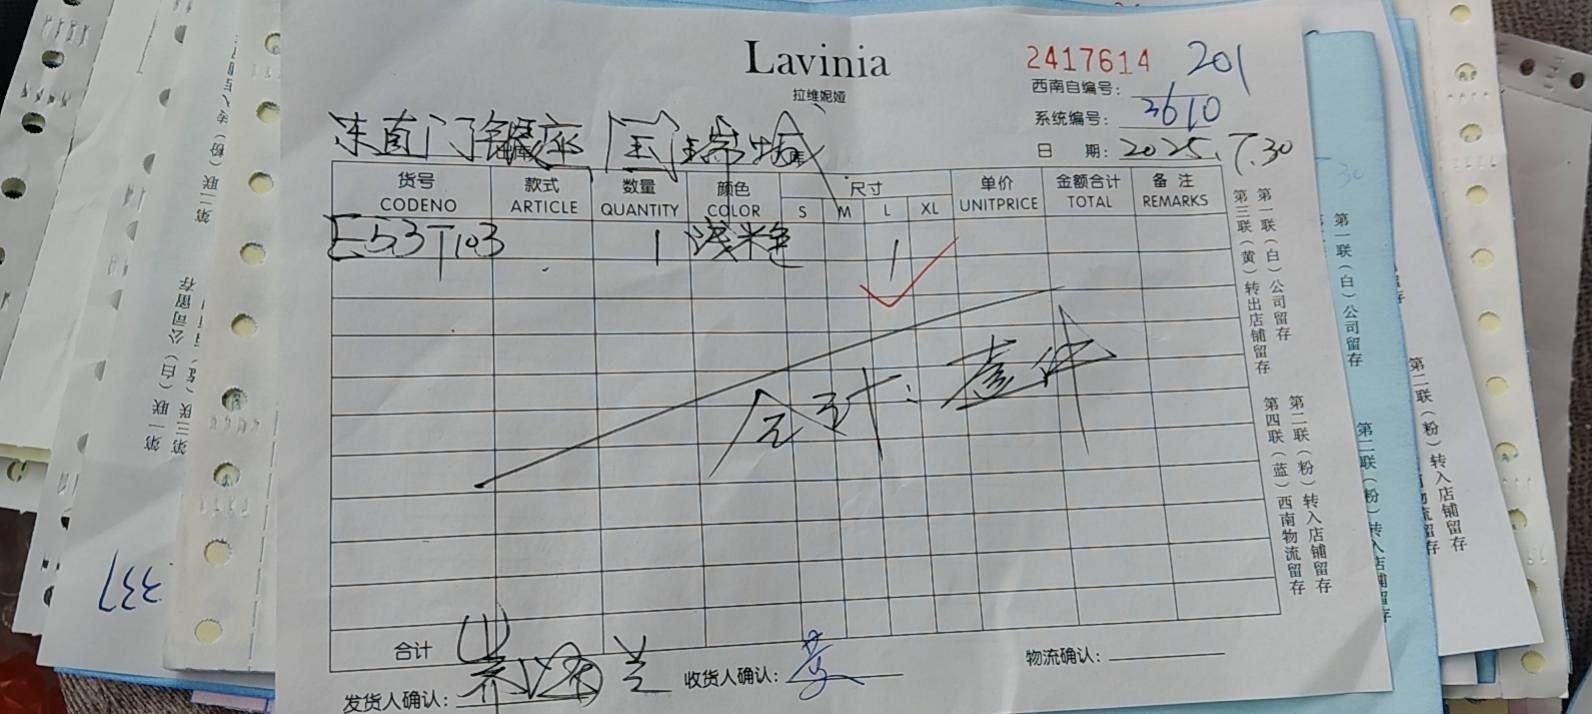 Lavinia
拉维妮娅
2417614 201
西南自编号：
系统编号：3610
日 期：2025.7.30
东直门银座 国瑞城
货号 款式 数量 颜色 尺寸 单价 金额合计 备 注
CODENO ARTICLE QUANTITY COLOR S M L XL UNITPRICE TOTAL REMARKS
E53T103 1 浅米色 1
合计：壹件
合计 (1)
发货人确认： 收货人确认： 物流确认：
第一联（白）公司留存
第三联（黄）转出店铺留存
第二联（粉）转入店铺留存
第四联（蓝）西南物流留存
第一联（白）公司留存
第二联（粉）转入店铺留存
第二联（粉）转入店铺留存
第一联（白）公司留存
337